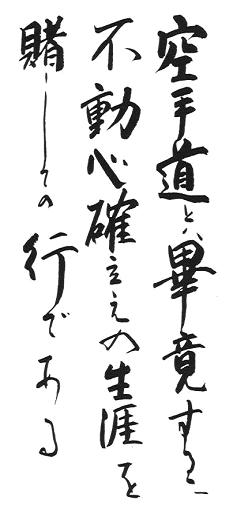 空手道とは畢竟するに
不動心確立への生涯を
賭しての行である